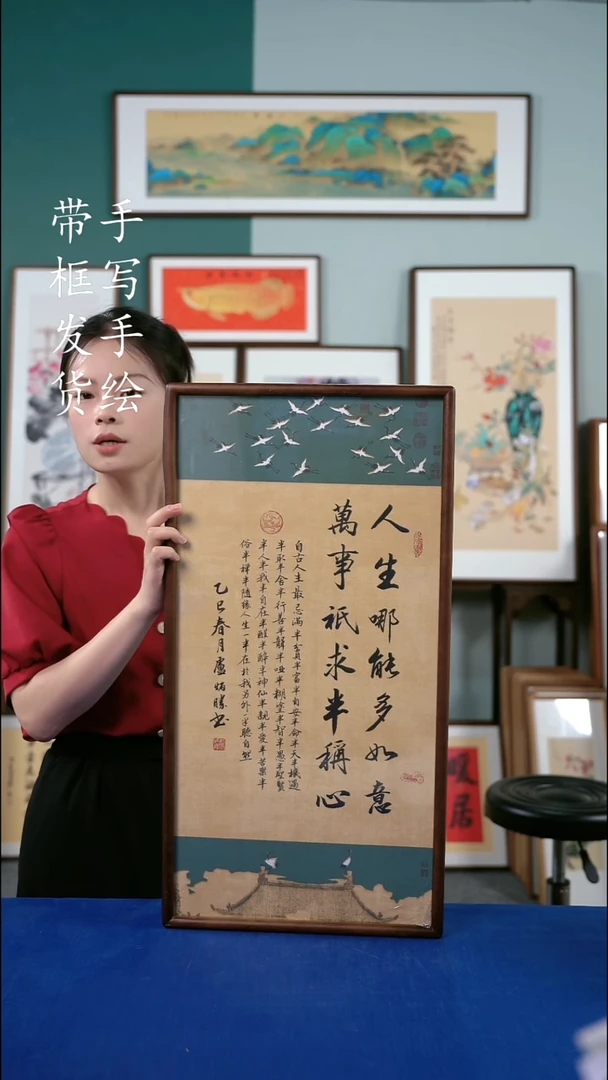 手写手绘
带框发货
人生哪能多如意
萬事祇求半稱心
自古人生最忌满半貧半富半自安半命半天半機遇
半取半舍半行善半聋半哑半糊塗半智半愚半聖賢
半人半我半自在半醒半醉半神仙半親半愛半苦樂半
俗半禅半随缘人生一半在於我另外一半聽自然
乙巳春月盧炳勝书